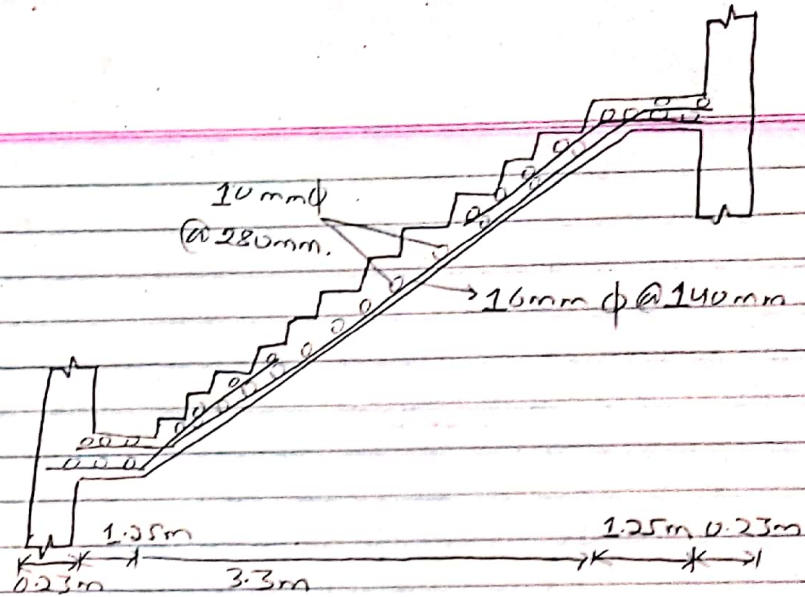 10mmϕ
@ 280mm.
16mm ϕ @ 140mm
1.25m
1.25m 0.23m
0.23m
3.3m